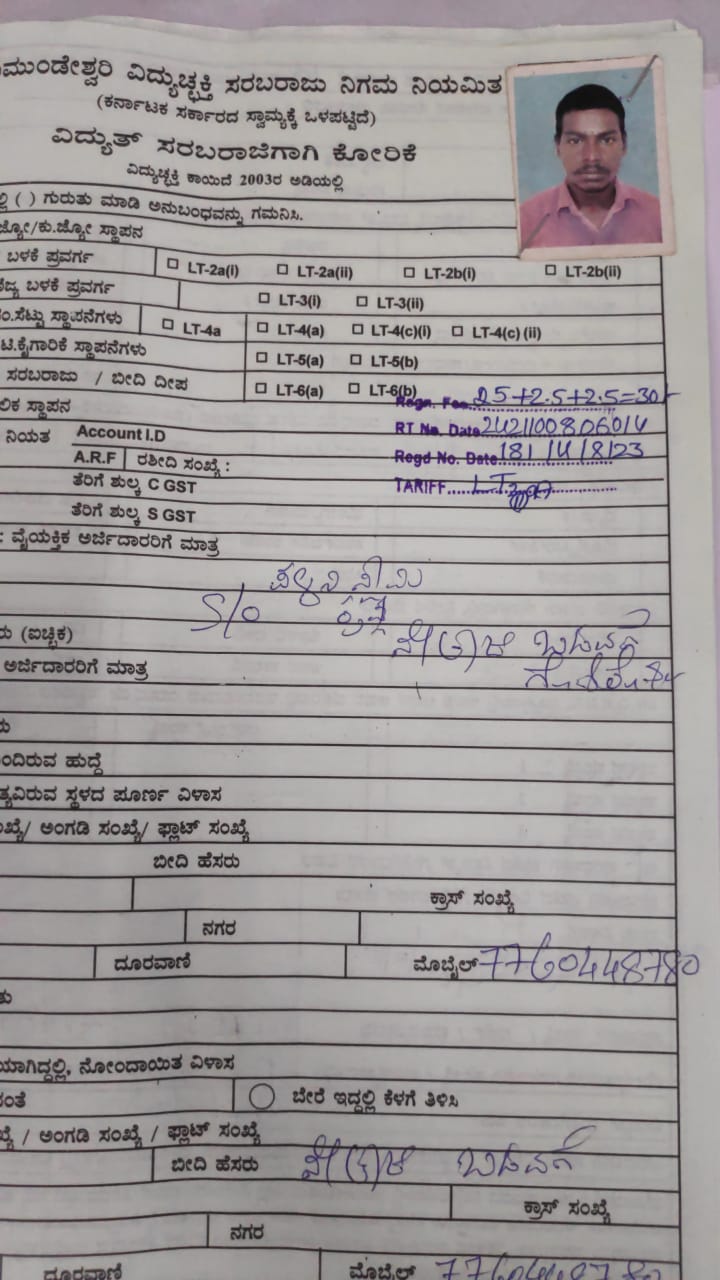 ಮುಂಡೇಶ್ವರಿ ವಿದ್ಯುಚ್ಛಕ್ತಿ ಸರಬರಾಜು ನಿಗಮ ನಿಯಮಿತ
(ಕರ್ನಾಟಕ ಸರ್ಕಾರದ ಸ್ವಾಮ್ಯಕ್ಕೆ ಒಳಪಟ್ಟಿದೆ)
ವಿದ್ಯುತ್ ಸರಬರಾಜಿಗಾಗಿ ಕೋರಿಕೆ
ವಿದ್ಯುಚ್ಛಕ್ತಿ ಕಾಯಿದೆ 2003ರ ಅಡಿಯಲ್ಲಿ
ಲ್ಲಿ ( ) ಗುರುತು ಮಾಡಿ ಅನುಬಂಧವನ್ನು ಗಮನಿಸಿ.
ಜ್ಯೋ/ಕು.ಜ್ಯೋ ಸ್ಥಾಪನ
ಬಳಕೆ ಪ್ರವರ್ಗ LT-2a(i) LT-2a(ii) LT-2b(i) LT-2b(ii)
ಬಳಕೆ ಪ್ರವರ್ಗ LT-3(i) LT-3(ii)
ಸೆಟ್ಟು ಸ್ಥಾಪನೆಗಳು LT-4a LT-4(a) LT-4(c)(i) LT-4(c) (ii)
ಟಿ.ಕೈಗಾರಿಕೆ ಸ್ಥಾಪನೆಗಳು LT-5(a) LT-5(b)
ಸರಬರಾಜು / ಬೀದಿ ದೀಪ LT-6(a) LT-6(b)
Regn. Fee 25+2.5+2.5=30/-
ಲಿಕ ಸ್ಥಾಪನ
RT No. Date
ನಿಯತ Account I.D
Regd No. Date 181/4/8/23
A.R.F ರಶೀದಿ ಸಂಖ್ಯೆ :
TARIFF
ತೆರಿಗೆ ಶುಲ್ಕ C GST
ತೆರಿಗೆ ಶುಲ್ಕ S GST
: ವೈಯಕ್ತಿಕ ಅರ್ಜಿದಾರರಿಗೆ ಮಾತ್ರ
S/o
ರು (ಐಚ್ಛಿಕ)
ಅರ್ಜಿದಾರರಿಗೆ ಮಾತ್ರ
ರು
ಂದಿರುವ ಹುದ್ದೆ
ತ್ಯವಿರುವ ಸ್ಥಳದ ಪೂರ್ಣ ವಿಳಾಸ
ಖ್ಯೆ/ ಅಂಗಡಿ ಸಂಖ್ಯೆ/ ಫ್ಲಾಟ್ ಸಂಖ್ಯೆ
ಬೀದಿ ಹೆಸರು
ಕ್ರಾಸ್ ಸಂಖ್ಯೆ
ನಗರ
ದೂರವಾಣಿ ಮೊಬೈಲ್ 7760448780
ಯಾಗಿದ್ದಲ್ಲಿ, ನೋಂದಾಯಿತ ವಿಳಾಸ
ಂತೆ ಬೇರೆ ಇದ್ದಲ್ಲಿ ಕೆಳಗೆ ತಿಳಿಸಿ
ಖ್ಯೆ / ಅಂಗಡಿ ಸಂಖ್ಯೆ / ಫ್ಲಾಟ್ ಸಂಖ್ಯೆ
ಬೀದಿ ಹೆಸರು
ಕ್ರಾಸ್ ಸಂಖ್ಯೆ
ನಗರ
ದೂರವಾಣಿ ಮೊಬೈಲ್ 7760448780